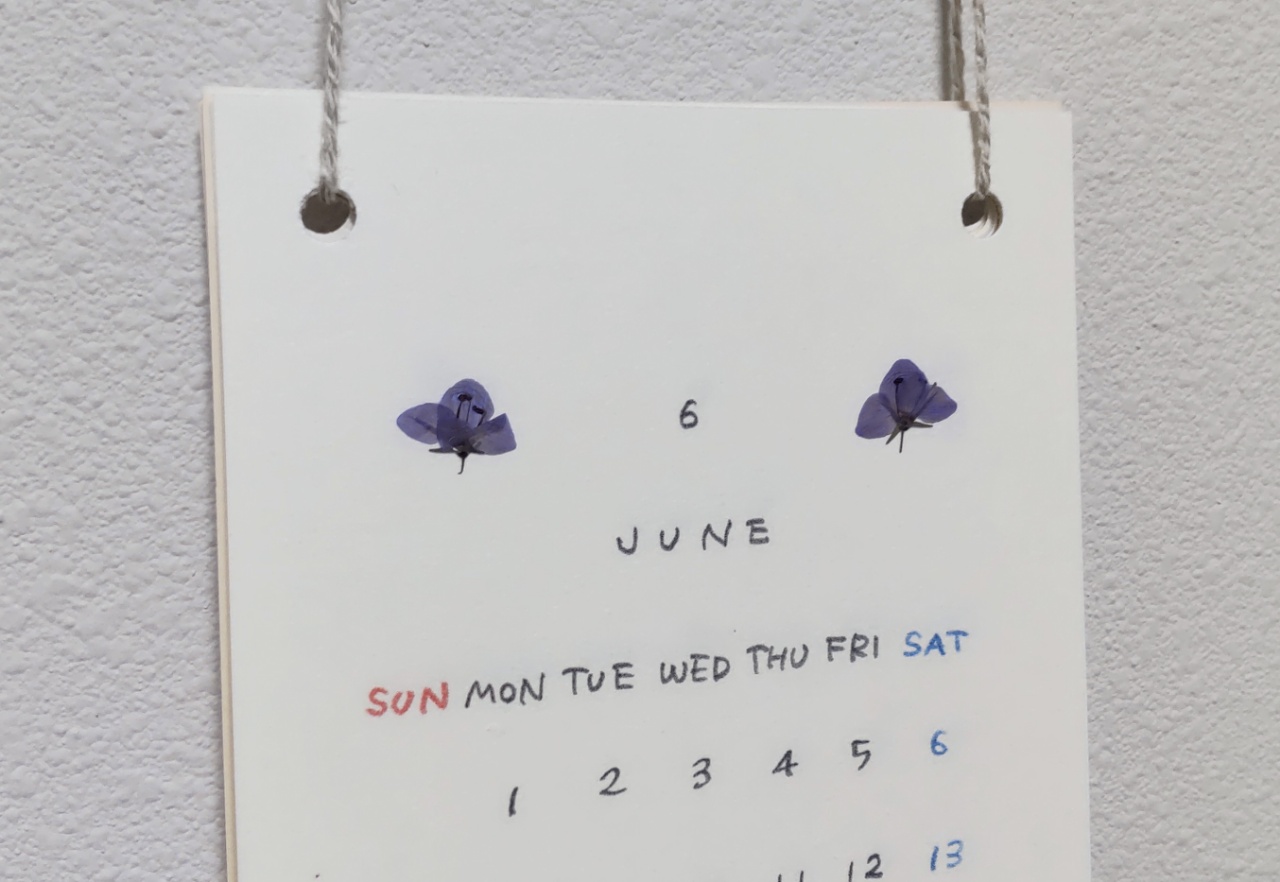 6
JUNE
SUN MON TUE WED THU FRI SAT
1 2 3 4 5 6
12 13